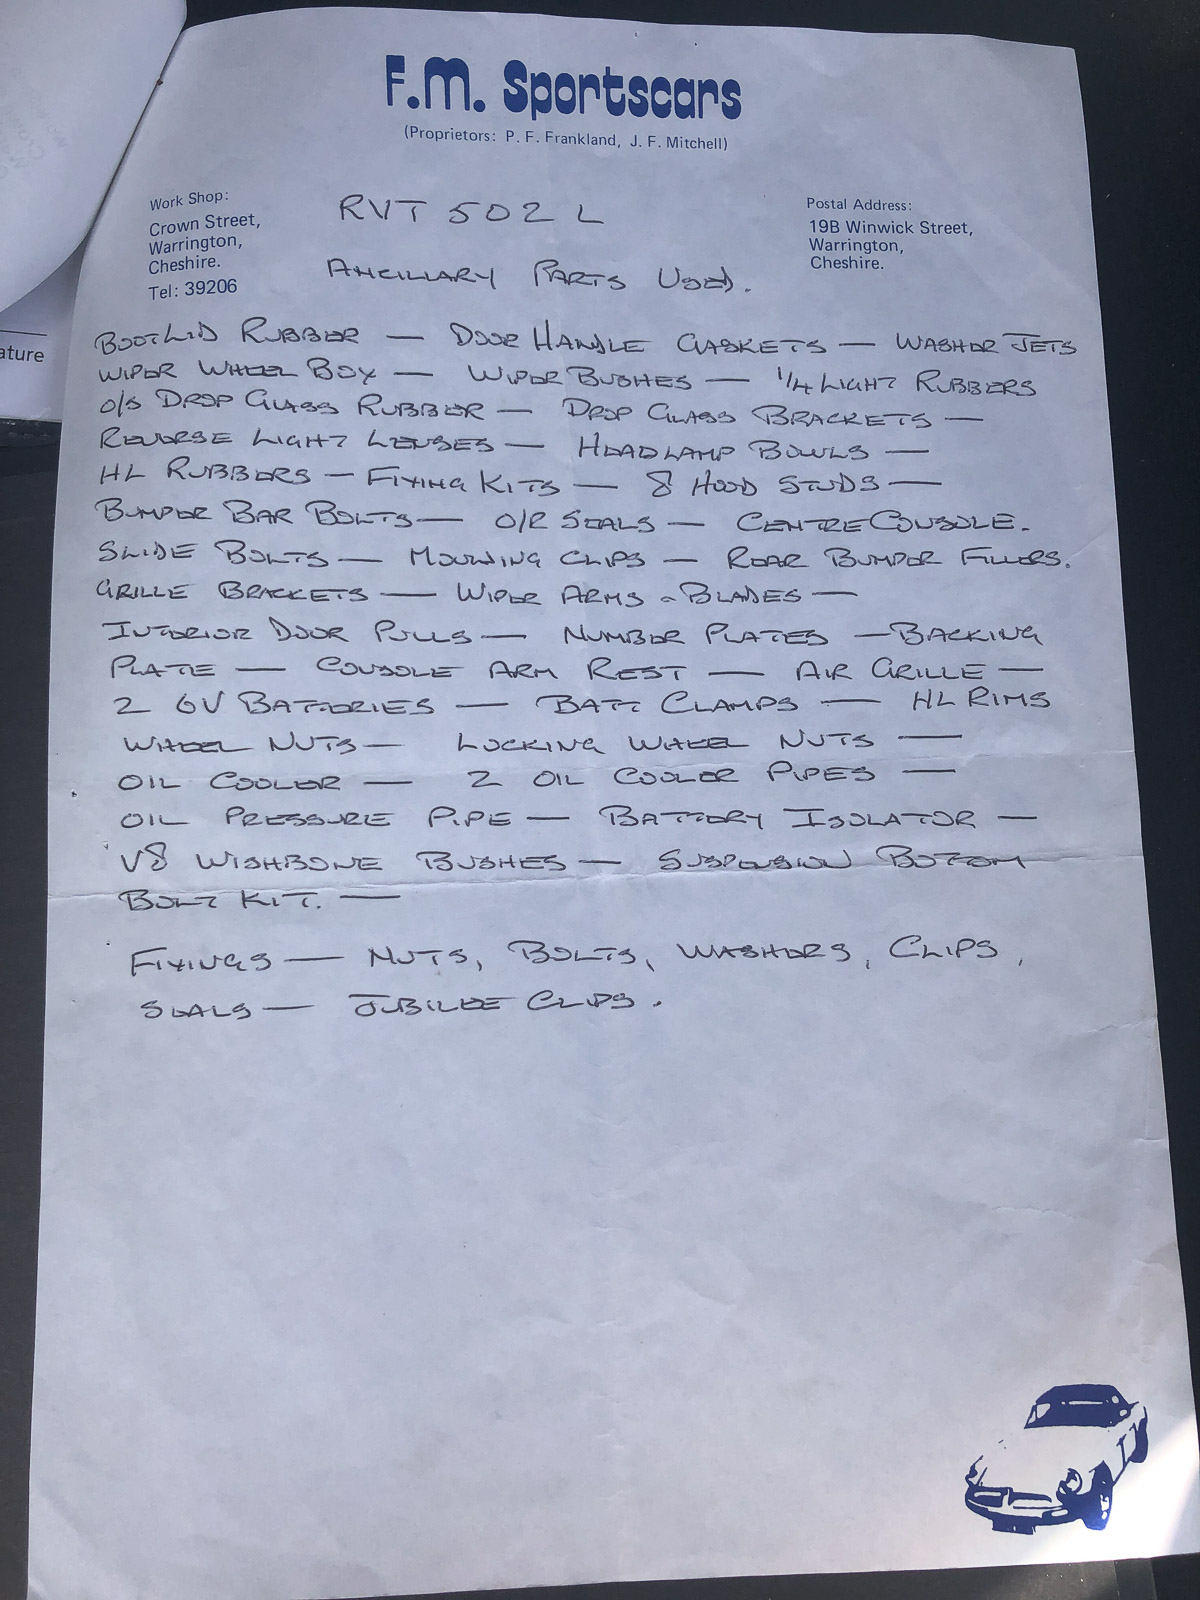 F.M. Sportscars
(Proprietors: P. F. Frankland, J. F. Mitchell)
Work Shop:
Crown Street,
Warrington,
Cheshire.
Tel: 39206
Postal Address:
19B Winwick Street,
Warrington,
Cheshire.
RVT 502 L
ANCILLARY PARTS USED.
BOOTLID RUBBER — DOOR HANDLE GASKETS — WASHER JETS
WIPER WHEEL BOX — WIPER BUSHES — 1/4 LIGHT RUBBERS
O/S DROP GLASS RUBBER — DROP GLASS BRACKETS —
REVERSE LIGHT LENSES — HEADLAMP BOWLS —
HL RUBBERS — FIXING KITS — 8 HOOD STUDS —
BUMPER BAR BOLTS — O/R SEALS — CENTRE CONSOLE.
SLIDE BOLTS — MOULDING CLIPS — REAR BUMPER FILLERS.
GRILLE BRACKETS — WIPER ARMS & BLADES —
INTERIOR DOOR PULLS — NUMBER PLATES — BACKING
PLATE — CONSOLE ARM REST — AIR GRILLE —
2 6V BATTERIES — BATT CLAMPS — HL RIMS
WHEEL NUTS — LOCKING WHEEL NUTS —
OIL COOLER — 2 OIL COOLER PIPES —
OIL PRESSURE PIPE — BATTERY ISOLATOR —
V8 WISHBONE BUSHES — SUSPENSION BOTTOM
BOLT KIT. —
FIXINGS — NUTS, BOLTS, WASHERS, CLIPS,
SEALS — JUBILEE CLIPS.
ature